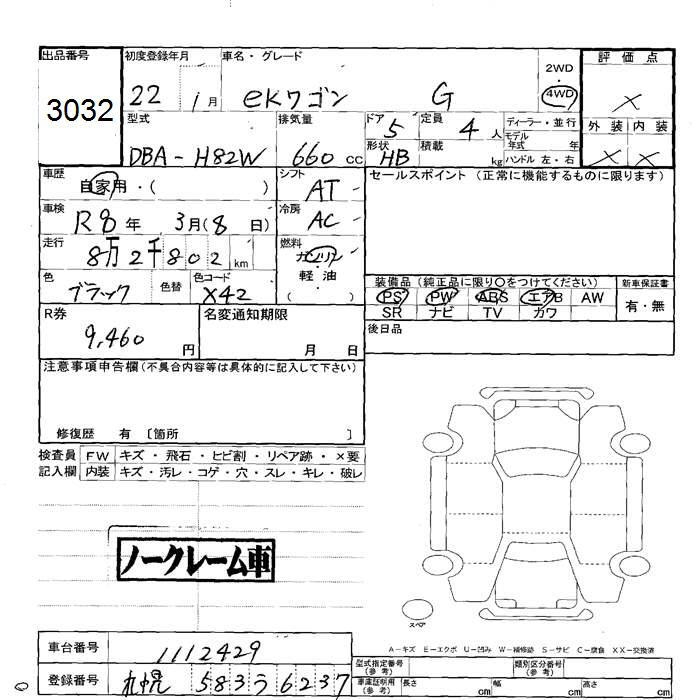 出品番号 初度登録年月 車名・グレード 評価点
3032 22 1月 eKワゴン G 2WD・4WD ×
型式 排気量 ドア 5 定員 4人 ディーラー・並行 外装 内装
DBA-H82W 660cc 形状 HB 積載 kg モデル年式 年 × ×
ハンドル 左・右
車歴 自家用・( ) シフト AT セールスポイント (正常に機能するものに限ります)
車検 R8年 3月(8日) 冷房 AC
走行 8万2千802km 燃料 ガソリン・軽油 ( )
色 ブラック 色替 色コード X42 装備品 (純正品に限り○をつけてください) 新車保証書
PS PW ABS エアB AW 有・無
SR ナビ TV カワ
R券 9,460円 名変通知期限 月 日 後日品
注意事項申告欄(不具合内容等は具体的に記入して下さい)
修復歴 有 〔箇所 〕
検査員 FW キズ・飛石・ヒビ割・リペア跡・×要
記入欄 内装 キズ・汚レ・コゲ・穴・スレ・キレ・破レ
ノークレーム車
スペア
A-キズ E-エクボ U-凹み W-補修跡 S-サビ C-腐食 XX-交換済
車台番号 1112429 型式指定番号(参考) 類別区分番号(参考)
登録番号 札幌 583う6237 車庫証明用(参考) 長さ cm 幅 cm 高さ cm